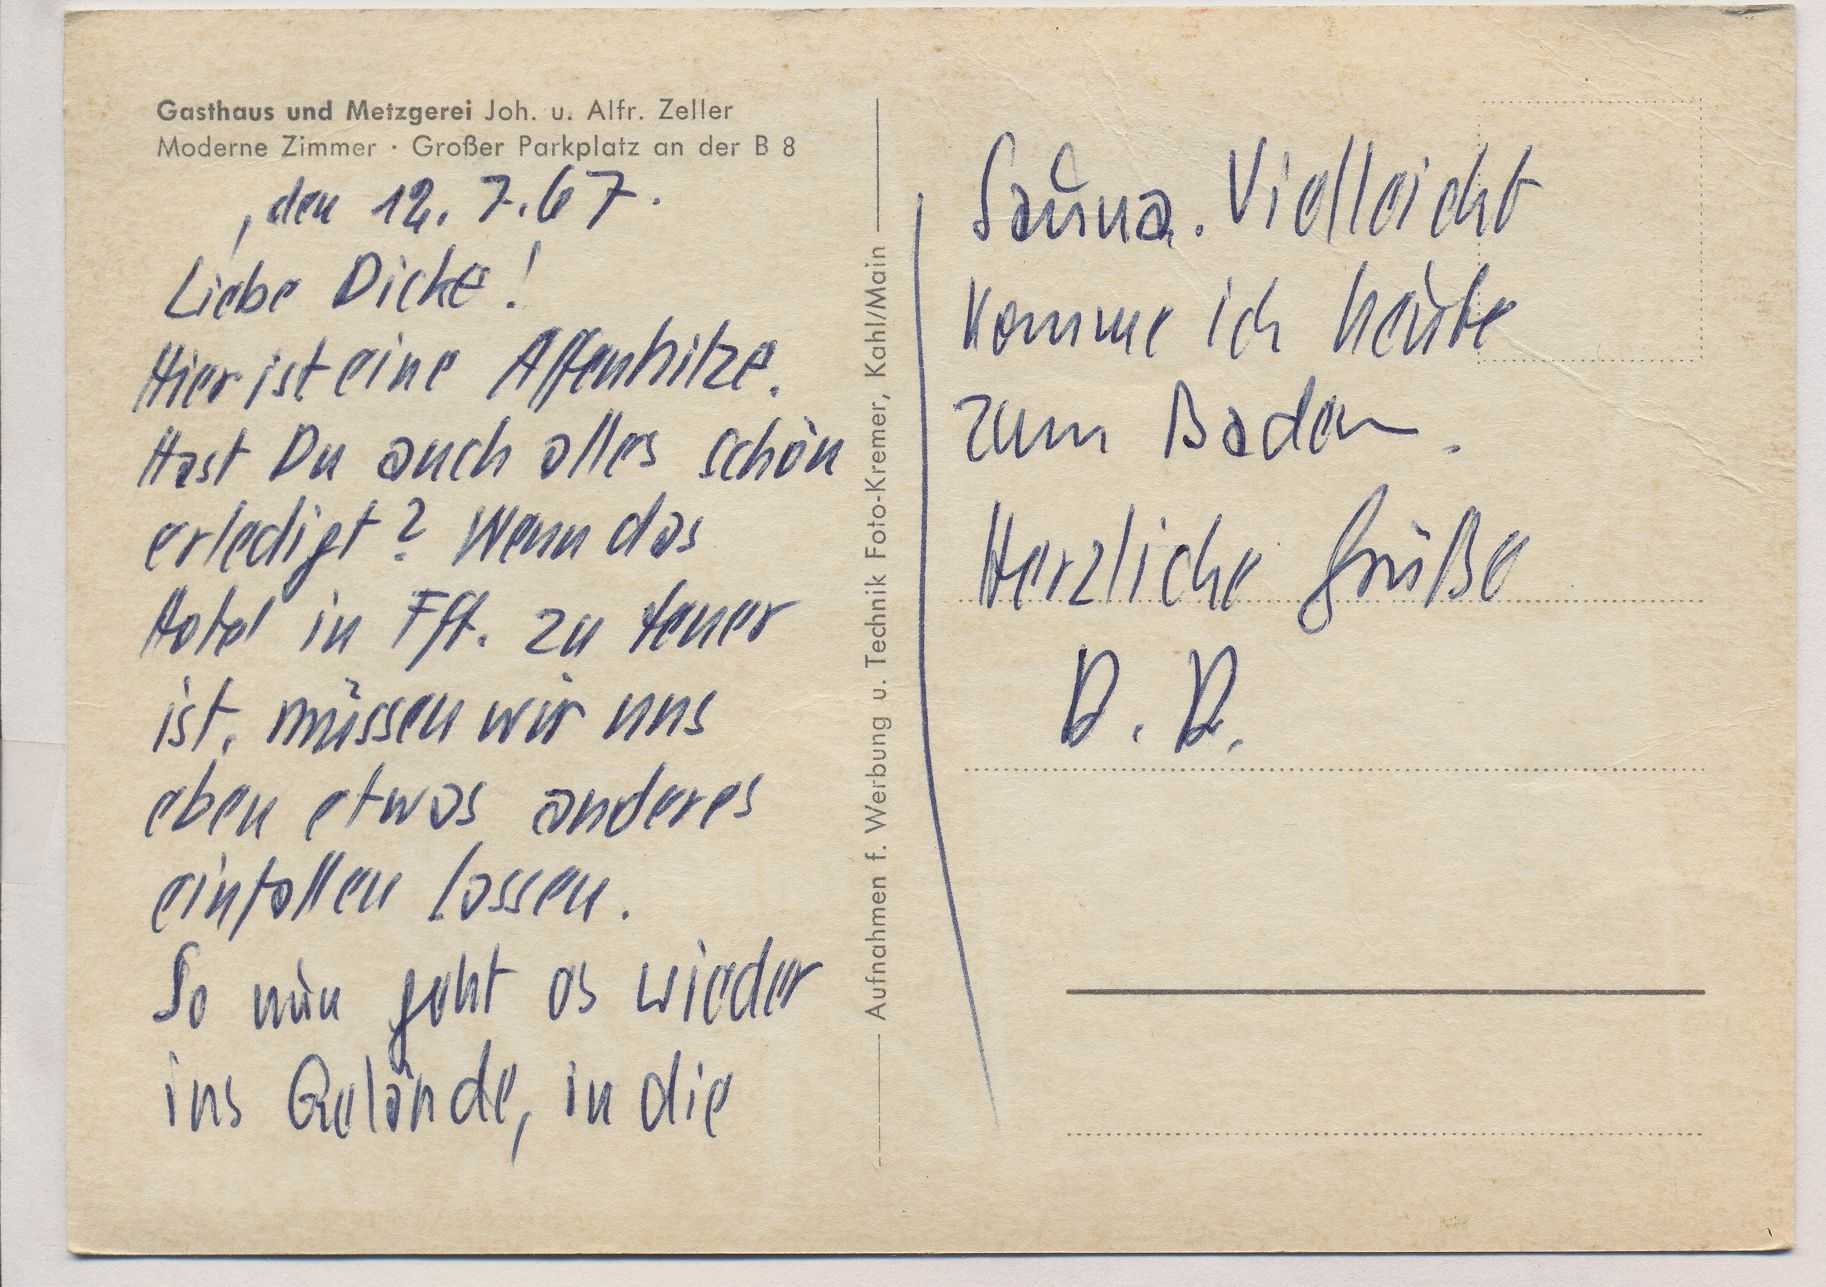 Gasthaus und Metzgerei Joh. u. Alfr. Zeller
Moderne Zimmer · Großer Parkplatz an der B 8
, den 12. 7. 67.
Liebe Dicke!
Hier ist eine Affenhitze.
Hast Du auch alles schön
erledigt? Wenn das
Hotel in Fft. zu teuer
ist, müssen wir uns
eben etwas anderes
einfallen lassen.
So nun geht es wieder
ins Gelände, in die
Aufnahmen f. Werbung u. Technik Foto-Kremer, Kahl/Main
Sauna. Vielleicht
komme ich heute
zum Baden.
Herzliche Grüße
D. D.